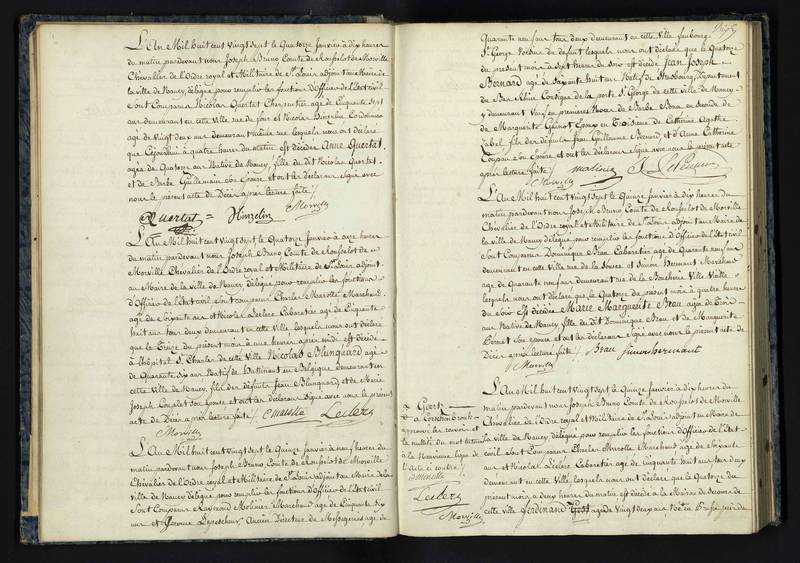 L'An Mil huit cent Vingt sept le Quatorze Janvier à dix heures
du matin pardevant nous Joseph Bruno Comte de Rousselot de Morville
Chevalier de l'Ordre royal et Militaire de St Louis adjoint au Maire de
la ville de Nancy délégué pour remplir les fonctions d'Officier de l'Etat civil
sont Comparus Nicolas Quertat Charpentier agé de Cinquante Sept
ans demeurant en cette ville rue du et Nicolas Hinzelin Cordonnier
agé de Vingt deux ans demeurant même rue lesquels nous ont déclaré
que Cejourdhui à quatre heures du matin est décédée Anne Quertat
agée de Quatorze ans Native de Nancy, fille du dit Nicolas Quertat
et de Barbe Guillemin son Epouse et ont les déclarans Signé avec
nous le présent acte de Décès après lecture faite /.
Quertat = Hinzelin Morville
L'An Mil huit cent Vingt sept le Quatorze Janvier à onze heures
du matin pardevant nous Joseph Bruno Comte de Rousselot de
Morville Chevalier de l'Ordre royal et Militaire de St Louis adjoint
au Maire de la ville de Nancy délégué pour remplir les fonctions
d'Officier de l'Etat civil sont comparus Charles Marotte Marchand
agé de Soixante ans et Nicolas Leclerc Cabaretier agé de Cinquante
huit ans tous deux demeurant en cette ville, lesquels nous ont déclaré
que le Treize du présent mois à une heure après midi est décédé
à l'hôpital St Charles de cette ville Nicolas Blunquard agé
de Quarante six ans Natif de en Belgique demeurant en
cette ville de Nancy, fils des défunts Jean Blunquard et de Marie
Joseph son Epouse et ont les déclarans Signé avec nous le présent
acte de Décès après lecture faite /. Marotte Leclerc
Morville
L'An Mil huit cent Vingt sept le Quinze Janvier à neuf heures du
matin pardevant nous Joseph Bruno Comte de Rousselot de Morville
Chevalier de l'Ordre royal et Militaire de St Louis adjoint au Maire de la
ville de Nancy délégué pour remplir les fonctions d'Officier de l'Etat civil
Sont Comparus Raymond Molinier Marchand agé de Cinquante six
ans et Jerome Lepescheur, Ancien Directeur de Messageries agé de
Quarante neuf ans tous deux demeurant en cette Ville faubourg
St George Voisins du défunt lesquels nous ont déclaré que le Quatorze
du présent mois à sept heures du soir est décédé Jean Joseph
Bernard agé de Soixante huit ans Natif de Strasbourg, Département
du Bas Rhin Consigne de la porte St George de cette ville de Nancy
y demeurant Veuf en premières Noces de Barbe Bona en Seconde de
de Marguerite Epoux en Troisième de Catherine Agathe
fils des défunts Jean Guillaume Bernard et d'Anne Catherine
son Epouse et ont les déclarans Signé avec nous le présent acte
après lecture faite /.
Morville
L'An Mil huit cent Vingt sept le Quinze Janvier à dix heures du
matin pardevant nous Joseph Bruno Comte de Rousselot de Morville
Chevalier de l'Ordre royal et Militaire de St Louis adjoint au Maire de
la ville de Nancy délégué pour remplir les fonctions d'Officier de l'Etat civil
Sont Comparus Dominique Beau Cabaretier agé de Quarante neuf ans
demeurant en cette Ville rue de la Source et Simon Hermant Marchand
agé de Quarante neuf ans demeurant rue de la Boucherie Ville Vieille
lesquels nous ont déclaré que le Quatorze du présent mois à quatre heures
du soir est décédée Marie Marguerite Beau agée de Trois
ans Native de Nancy fille du dit Dominique Beau et de Marguerite
son épouse et ont les déclarans Signé avec nous le présent acte de
Décès après lecture faite /. Beau Simon hermant
Morville
L'An Mil huit cent Vingt sept le Quinze Janvier à dix heures du
matin pardevant nous Joseph Bruno Comte de Rousselot de Morville
Chevalier de l'Ordre royal et Militaire de St Louis adjoint au Maire de
la Ville de Nancy délégué pour remplir les fonctions d'Officier de l'Etat
civil Sont Comparus Charles Marotte Marchand agé de Soixante
ans et Nicolas Leclerc Cabaretier agé de Cinquante huit ans tous deux
demeurant en cette Ville, lesquels nous ont déclaré que le Quatorze du
présent mois à deux heures du matin est décédé à la Maison de Secours de
cette ville Ferdinand agé de Vingt deux ans né en Prusse près de
Goertz
à
approuvé le renvoi et
la nullité du mot
à la Neuvième ligne de
l'acte ci contre /.
Marotte
Leclerc
Morville